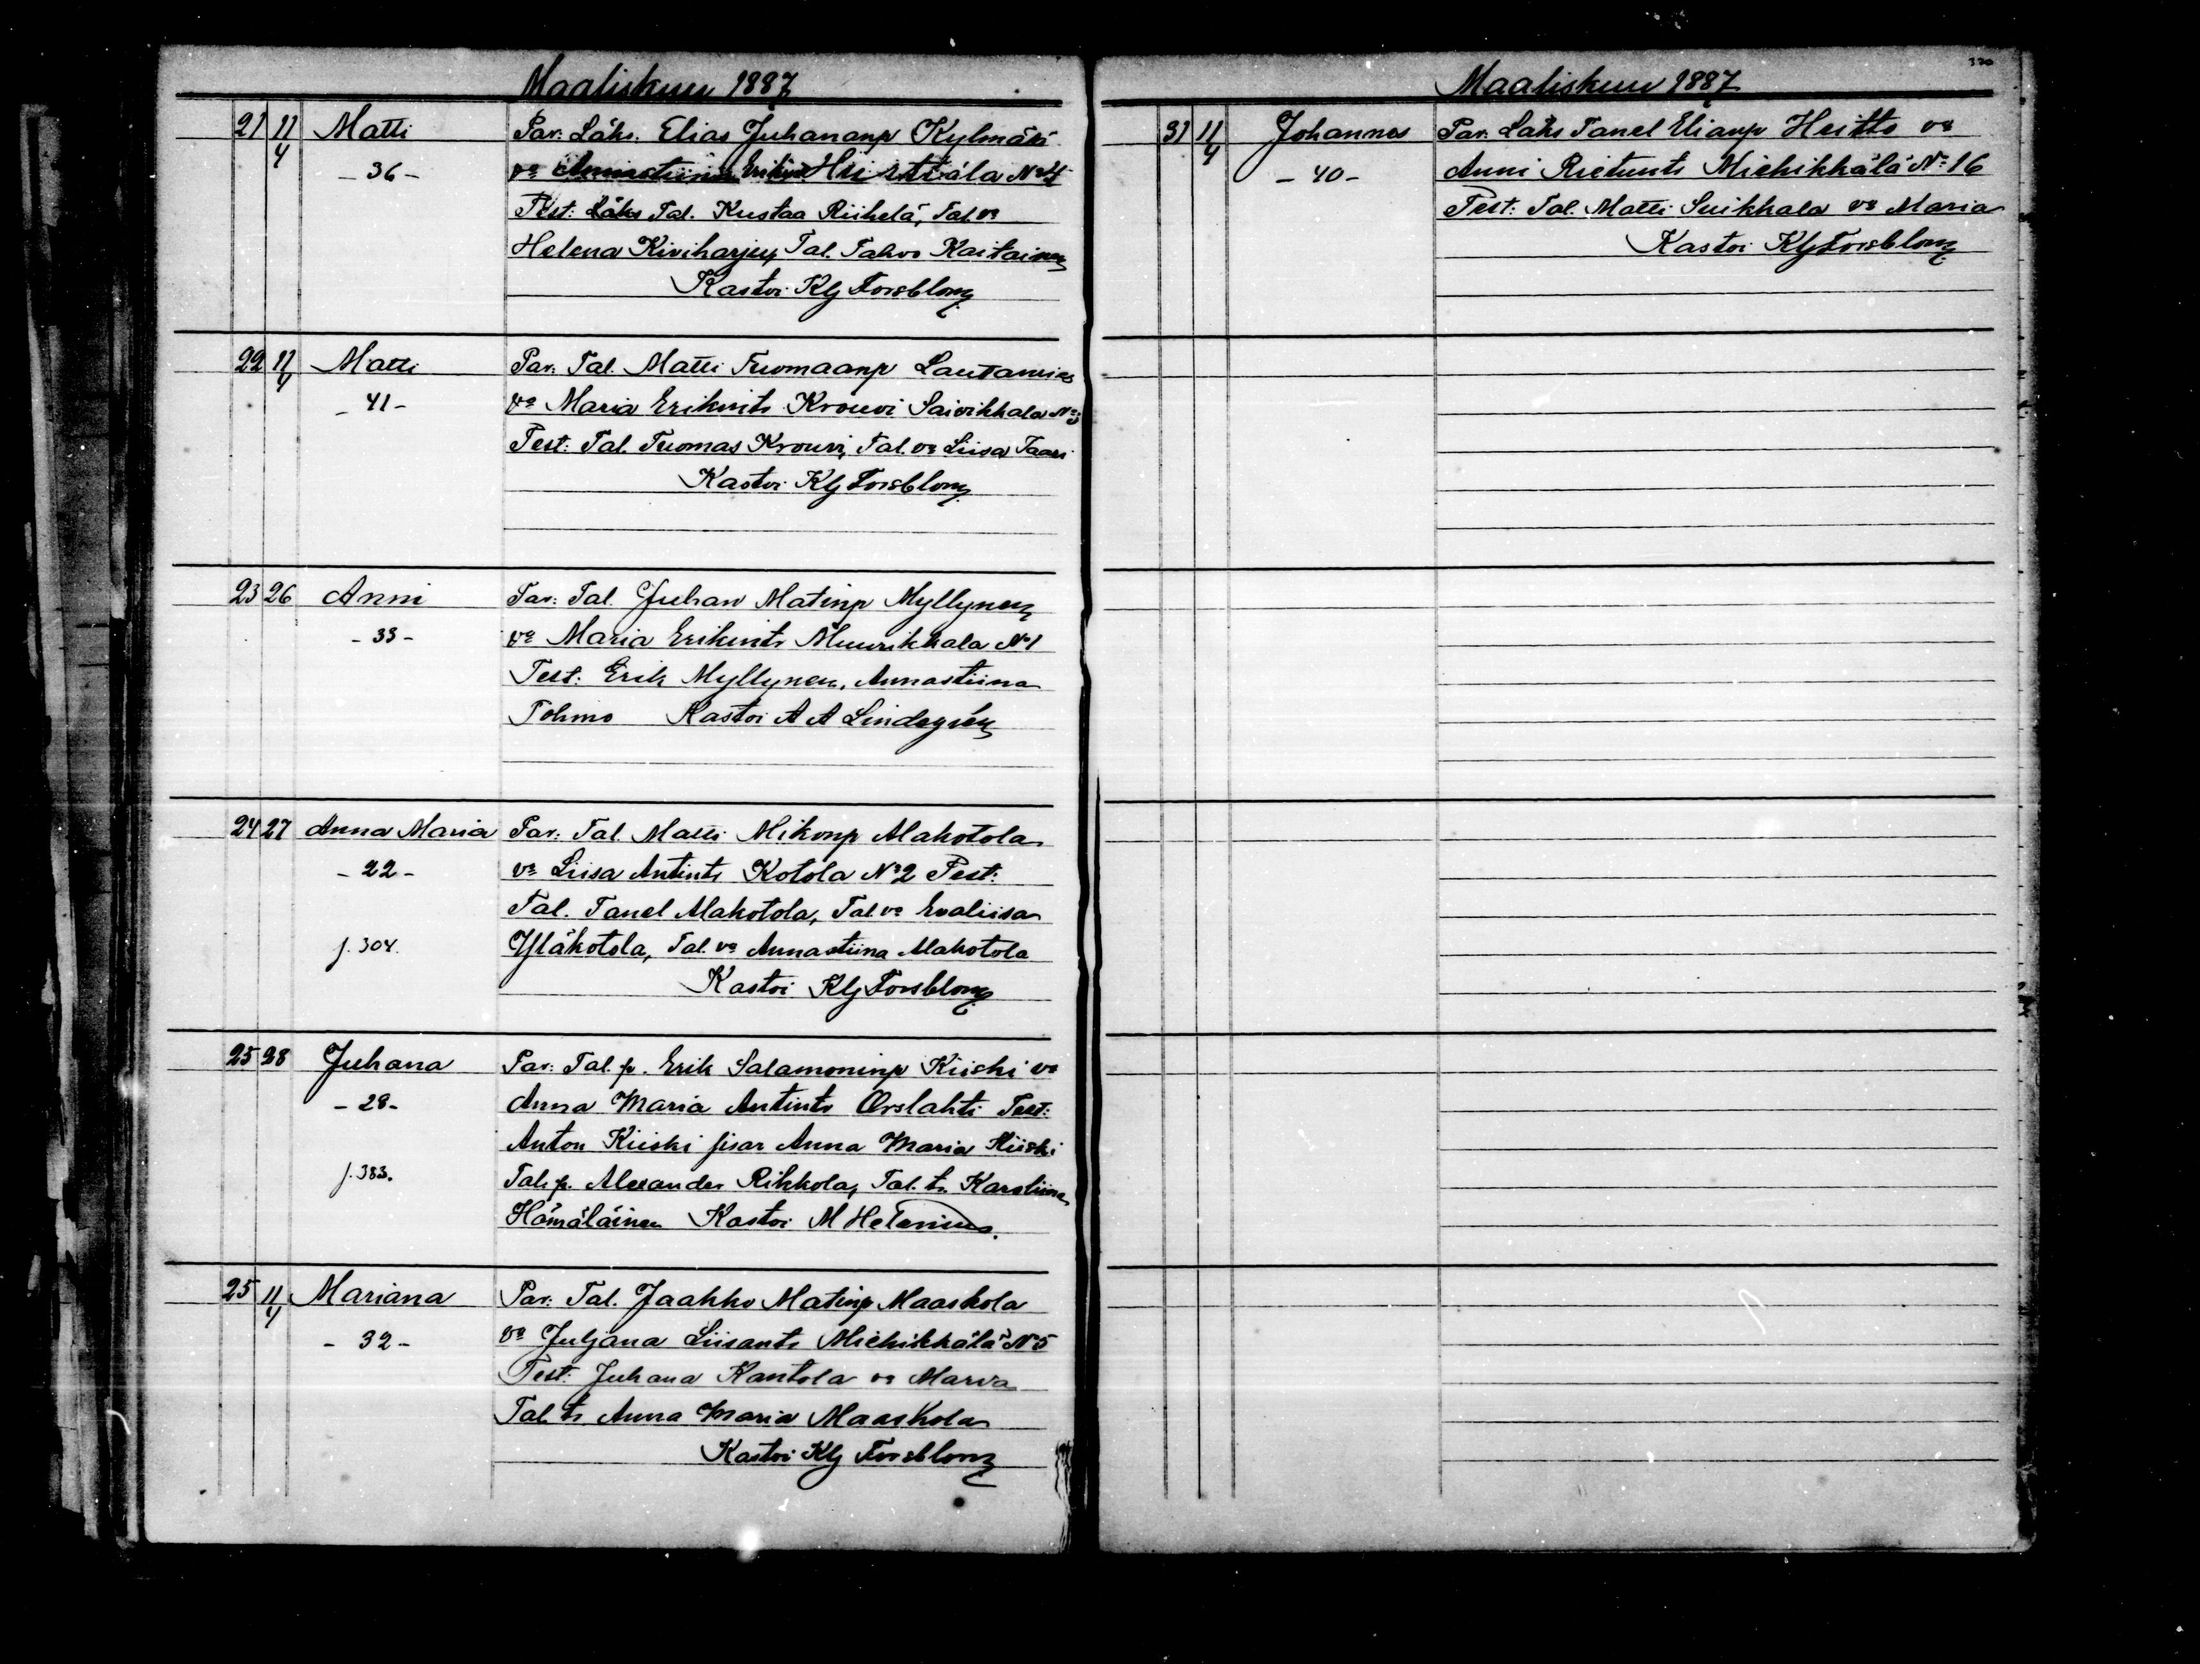 Maaliskuu 1887
21 11/4 Matti Par: Läks. Elias Juhananp Kylmäs
- 36 - va Annastiina Erikint Hei ttiälä No 4
Test: Läks Tal. Kustaa Riihelä, Tal. va
Helena Kiviharju, Tal. Tahvo Kaitainen
Kastoi Klj Forsblom
22 11/4 Matti Par: Tal. Matti Tuomaanp Lautamies
- 41 - va Maria Erikints Krouvi Saivikkala No 3
Test: Tal. Tuomas Krouvi, Tal. va Liisa Taari
Kastoi Klj Forsblom
23 26 Anni Par: Tal. Juhan Matinp Myllynen
- 33 - va Maria Erikints Muurikkala No 1
Test: Erik Myllynen, Annastiina
Tohmo Kastoi A A Lindegrén
24 27 Anna Maria Par: Tal. Matti Mikonp Alakotola
- 22 - va Liisa Antints Kotola No 2 Test:
Tal. Tanel Alakotola, Tal va Evaliisa
f. 304. Yläkotola, Tal. va Annastiina Alakotola
Kastoi Klj Forsblom
25 28 Juhana Par: Tal. p. Erik Salamoninp Kiiski va
- 28 - Anna Maria Antints Orslahti Test:
Anton Kiiski sisar Anna Maria Kiiski
f. 383. Tal. p. Alexander Rikkola, Tal. t. Karoliina
Hämäläinen Kastoi M Helenius.
25 11/4 Mariana Par: Tal. Jaakko Matinp Maaskola
- 32 - va Juljana Liisants Miehikkälä No 5
Test: Juhana Kantola va Marva
Tal. t. Anna Maria Maaskola
Kastoi Klj Forsblom
Maaliskuu 1887
31 11/4 Johannes Par: Läks Tanel Elianp Heitto va
- 40 - Anni Rietunts Miehikkälä No 16
Test: Tal. Matti Suikkala va Maria
Kastoi Klj Forsblom